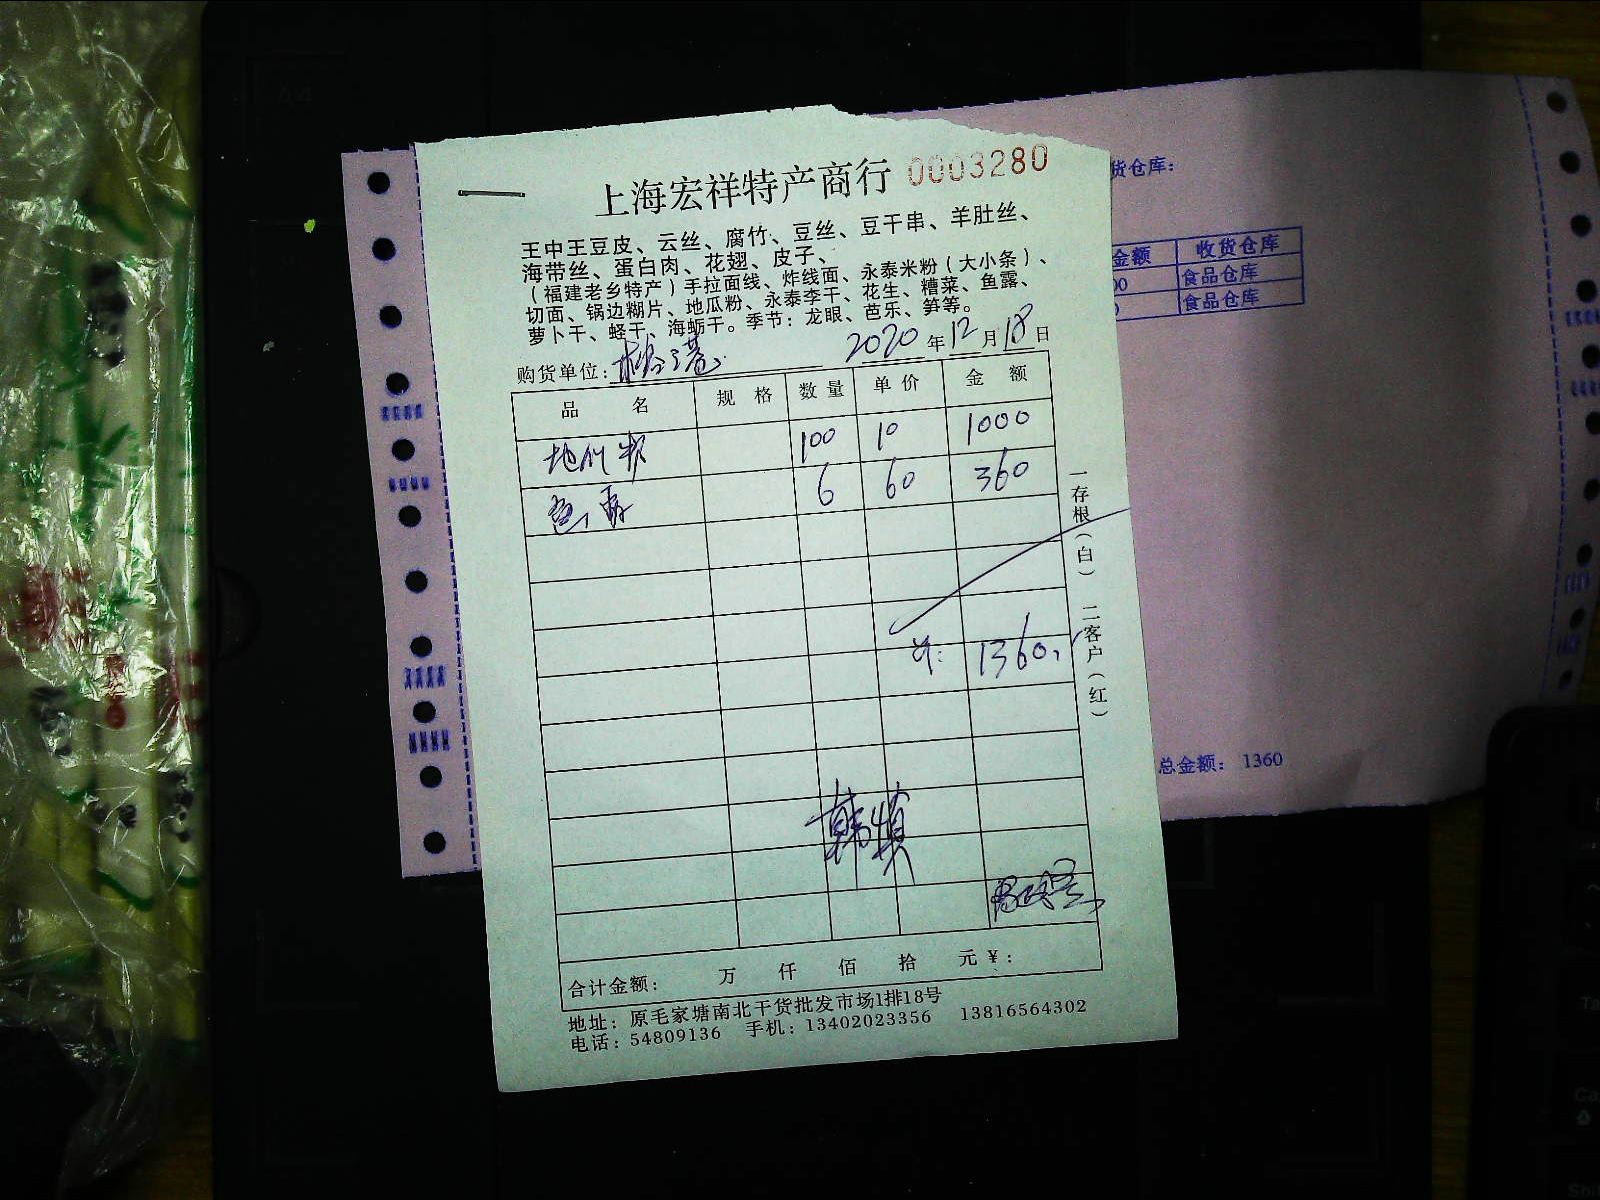 上海宏祥特产商行 0003280
王中王豆皮、云丝、腐竹、豆丝、豆干串、羊肚丝、
海带丝、蛋白肉、花翅、皮子、
（福建老乡特产）手拉面线、炸线面、永泰米粉（大小条）、
切面、锅边糊片、地瓜粉、永泰李干、花生、糟菜、鱼露、
萝卜干、蛏干、海蛎干。季节：龙眼、芭乐、笋等。
购货单位： 2020年12月18日
品名 规格 数量 单价 金额
地瓜粉 100 10 1000
鱼露 6 60 360
计: 1360.
韩慎
合计金额： 万 仟 佰 拾 元 ¥：
地址：原毛家塘南北干货批发市场1排18号
电话：54809136 手机：13402023356 13816564302
一存根（白） 二客户（红）
货仓库：
金额 收货仓库
00 食品仓库
食品仓库
总金额： 1360